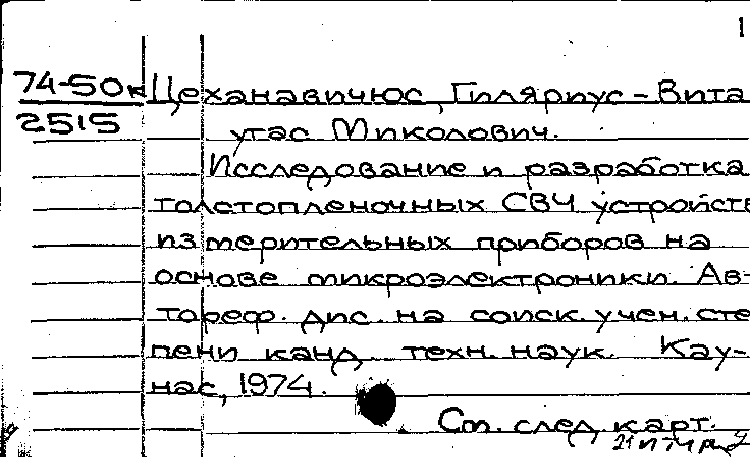 1
74-50к Цеханавичюс, Гиляриус-Вита
2515 утас Миколович.
Исследование и разработка
толстопленочных СВЧ устройств
измерительных приборов на
основе микроэлектроники. Ав-
тореф. дис. на соиск. учен. сте
пени канд. техн. наук. Кау-
нас, 1974.
См. след. карт.